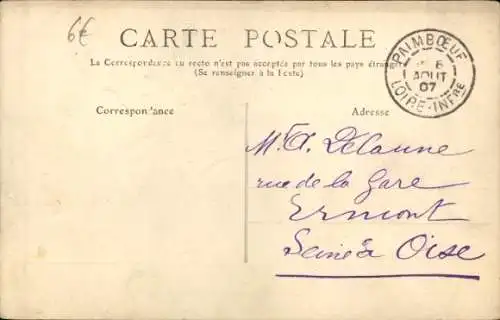 6€
CARTE POSTALE
La Correspondance au recto n'est pas acceptée par tous les pays étrangers
(Se renseigner à la Poste)
PAIMBŒUF
6
AOUT
07
LOIRE-INFRE
Correspondance
Adresse
Mr A. Delaune
rue de la Gare
Ermont
Seine & Oise